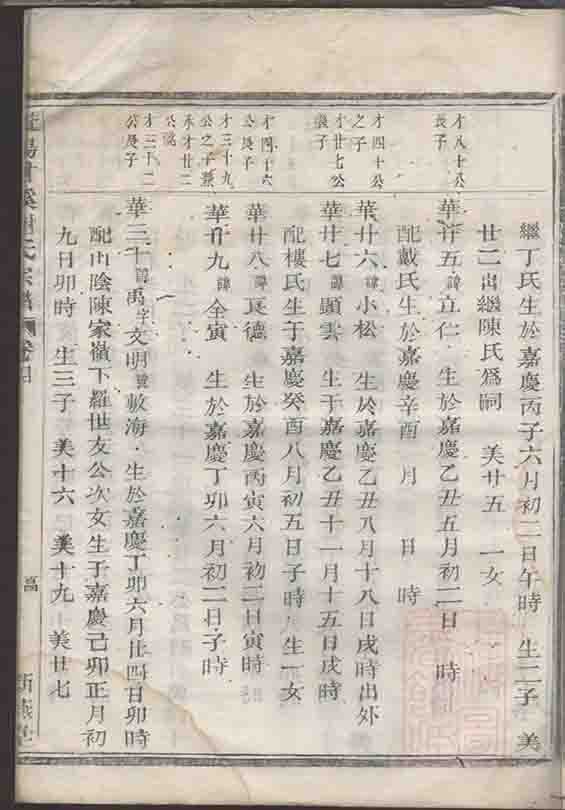 繼丁氏生於嘉慶丙子六月初二日午時 生二子 美
廿二出繼陳氏爲嗣 美廿五 一女
才八十公
長子
華廿五諱立仁 生於嘉慶乙丑五月初二日 時
配戴氏生於嘉慶辛酉 月 日 時
才四十公
之子
華廿六諱小松 生於嘉慶乙丑八月十八日戌時出外
才廿七公
長子
華廿七諱顯雲 生于嘉慶乙丑十一月十五日戌時
配樓氏生于嘉慶癸酉八月初五日子時 生一女
才四十六
公長子
華廿八諱良德 生於嘉慶丙寅六月初二日寅時
才三十九
公之子兼
承才廿二
公祧
華廿九諱全寅 生於嘉慶丁卯六月初二日子時
才三十二
公長子
華三十諱禹字文明號敷海 生於嘉慶丁卯六月廿四日卯時
配山陰陳家嶺下羅世友公次女生于嘉慶己卯正月初
九日卯時 生三子 美十六 美十九 美廿七
氏宗譜 卷四